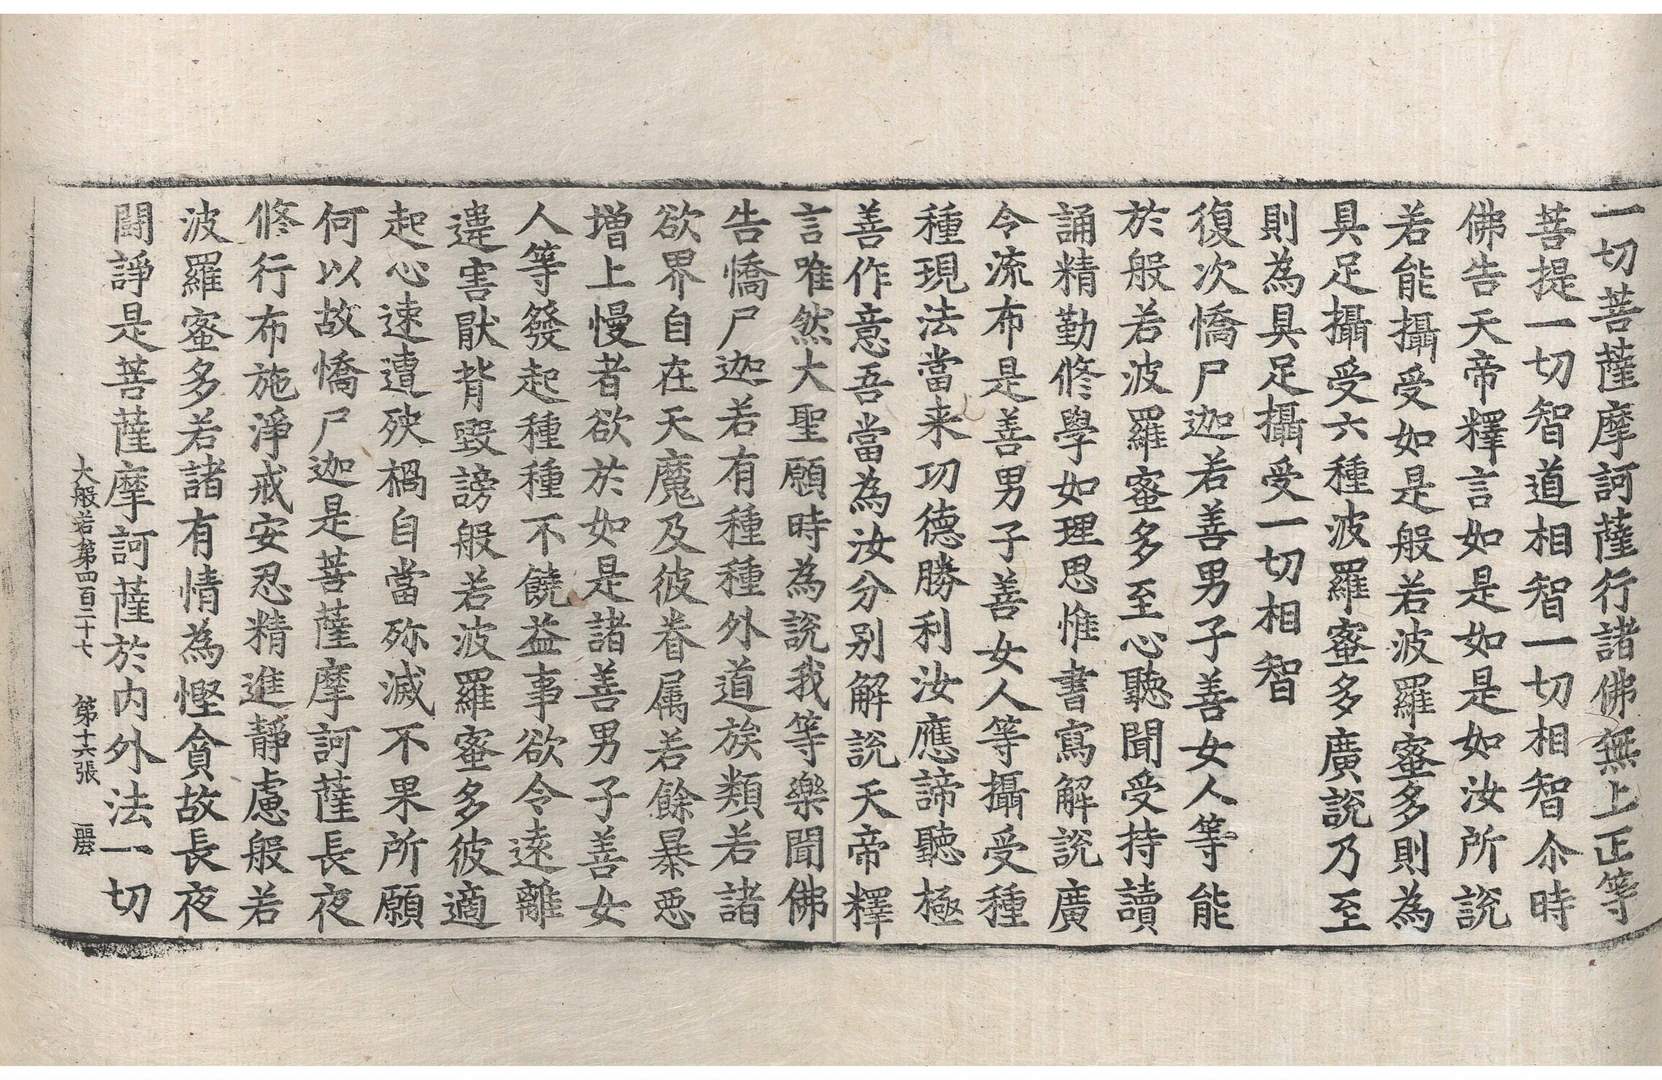 一切菩薩摩訶薩行諸佛無上正等
菩提一切智道相智一切相智尒時
佛告天帝釋言如是如是如汝所說
若能攝受如是般若波羅蜜多則為
具足攝受六種波羅蜜多廣說乃至
則為具足攝受一切相智
復次憍尸迦若善男子善女人等能
於般若波羅蜜多至心聽聞受持讀
誦精勤修學如理思惟書寫解說廣
令流布是善男子善女人等攝受種
種現法當来功德勝利汝應諦聽極
善作意吾當為汝分別解說天帝釋
言唯然大聖願時為說我等樂聞佛
告憍尸迦若有種種外道族類若諸
欲界自在天魔及彼眷属若餘暴惡
增上慢者欲於如是諸善男子善女
人等發起種種不饒益事欲令遠離
違害猒背毀謗般若波羅蜜多彼適
起心速遭殃禍自當殄滅不果所願
何以故憍尸迦是菩薩摩訶薩長夜
修行布施淨戒安忍精進靜慮般若
波羅蜜多若諸有情為慳貪故長夜
鬪諍是菩薩摩訶薩於內外法一切
大般若第四百二十七 第十六張 麗